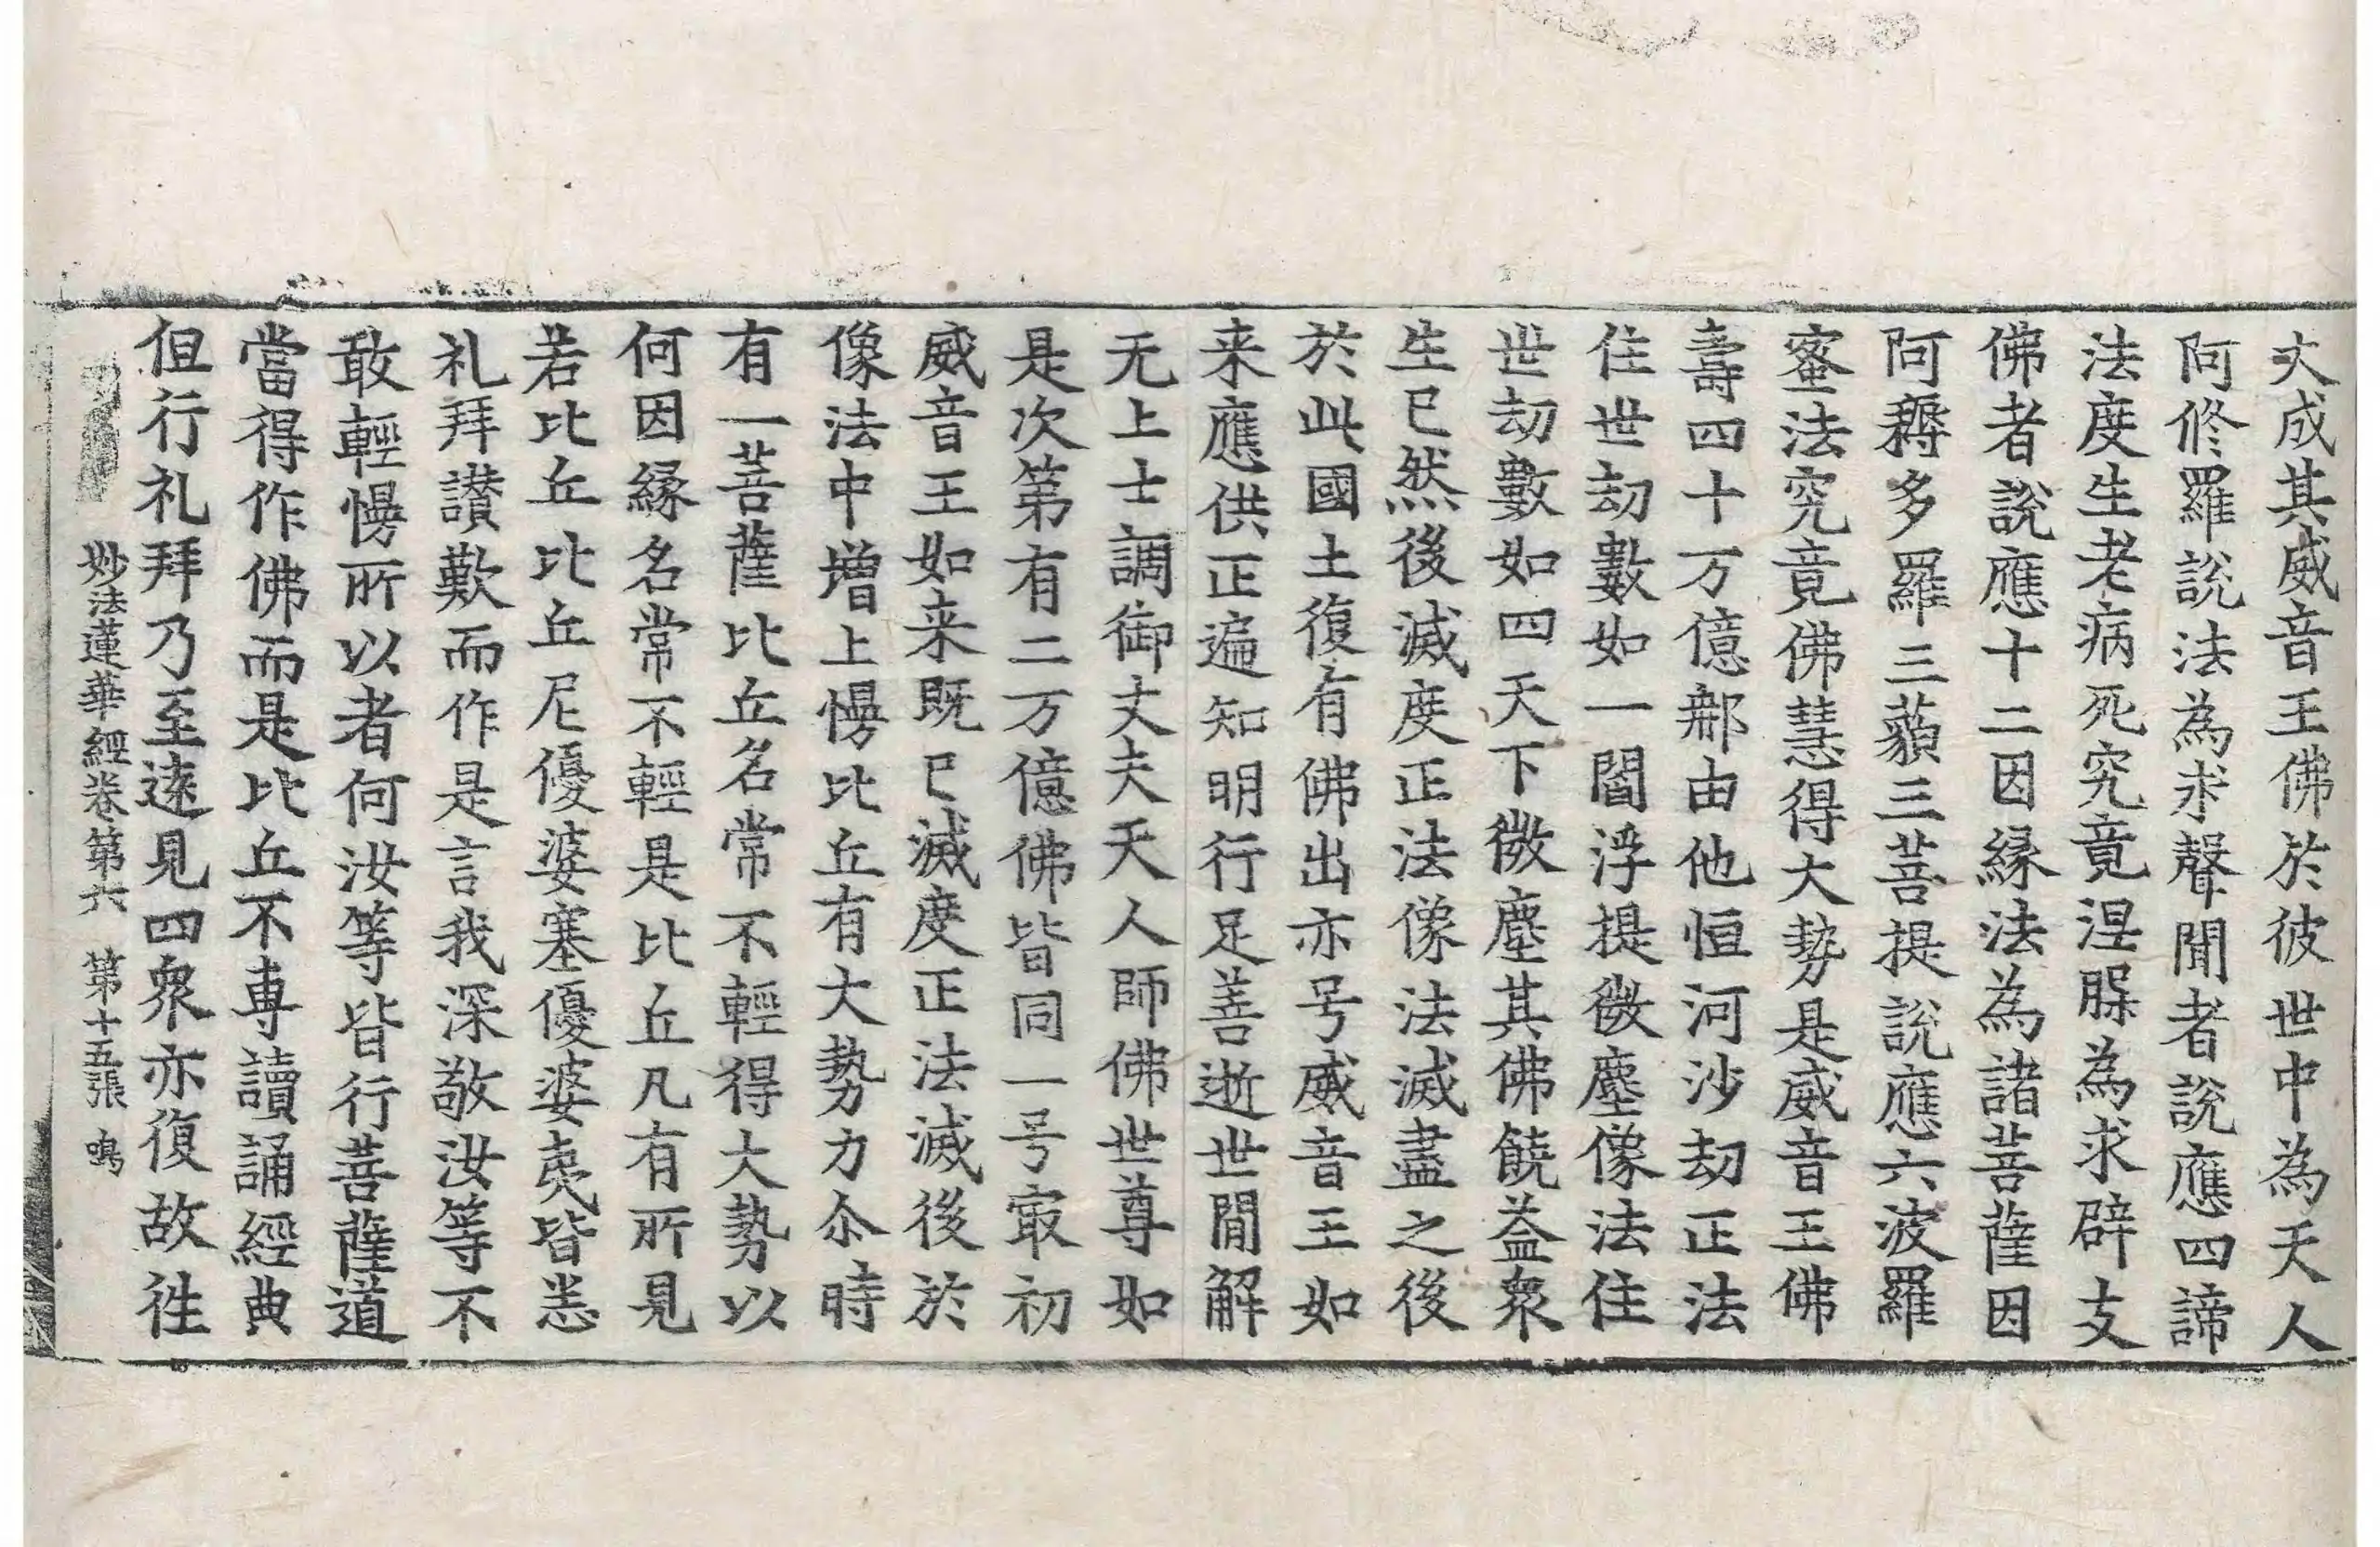 大成其威音王佛於彼世中為天人
阿修羅說法為求聲聞者說應四諦
法度生老病死究竟涅槃為求辟支
佛者說應十二因緣法為諸菩薩因
阿耨多羅三藐三菩提說應六波羅
蜜法究竟佛慧得大勢是威音王佛
壽四十万億那由他恒河沙劫正法
住世劫數如一閻浮提微塵像法住
世劫數如四天下微塵其佛饒益衆
生已然後滅度正法像法滅盡之後
於此國土復有佛出亦号威音王如
来應供正遍知明行足善逝世間解
无上士調御丈夫天人師佛世尊如
是次第有二万億佛皆同一号冣初
威音王如来既已滅度正法滅後於
像法中增上慢比丘有大勢力尒時
有一菩薩比丘名常不輕得大勢以
何因緣名常不輕是比丘凡有所見
若比丘比丘尼優婆塞優婆夷皆悉
礼拜讃歎而作是言我深敬汝等不
敢輕慢所以者何汝等皆行菩薩道
當得作佛而是比丘不專讀誦經典
但行礼拜乃至遠見四衆亦復故徃
妙法蓮華經卷第六 第十五張 鳴